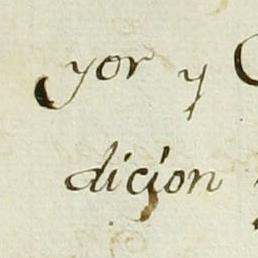 yor y
dicion